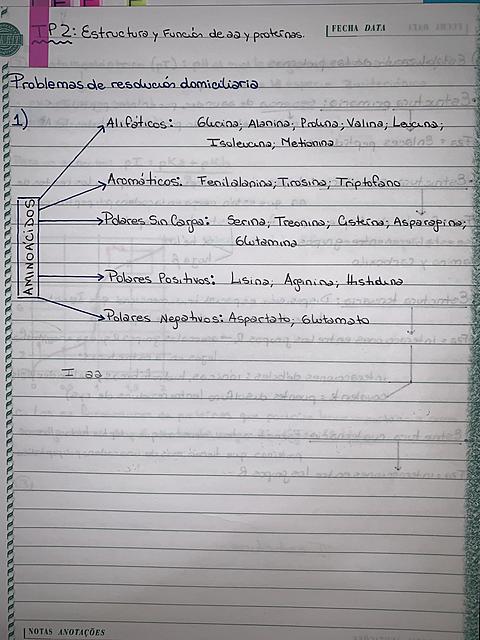 TP2: Estructura y Función de aa y proteínas.
FECHA DATA
Problemas de resolución domiciliaria
1)
Alifáticos: Glicina; Alanina; Prolina; Valina; Leucina;
Isoleucina; Metionina
Aromáticos: Fenilalanina; Tirosina; Triptofano
AMINOÁCIDOS
Polares Sin Carga: Serina; Treonina; Cisteína; Asparagina;
Glutamina
Polares Positivos: Lisina; Arginina; Histidina
Polares Negativos: Aspartato; Glutamato
I aa
NOTAS ANOTAÇÕES